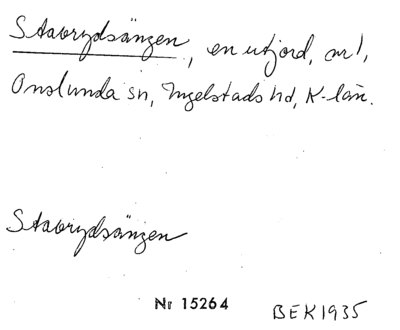 Stavrydsängen, en utjord, nr 1,
Onslunda sn, Ingelstads hd, K-län.
Stavrydsängen
Nr 15264
BEK 1935